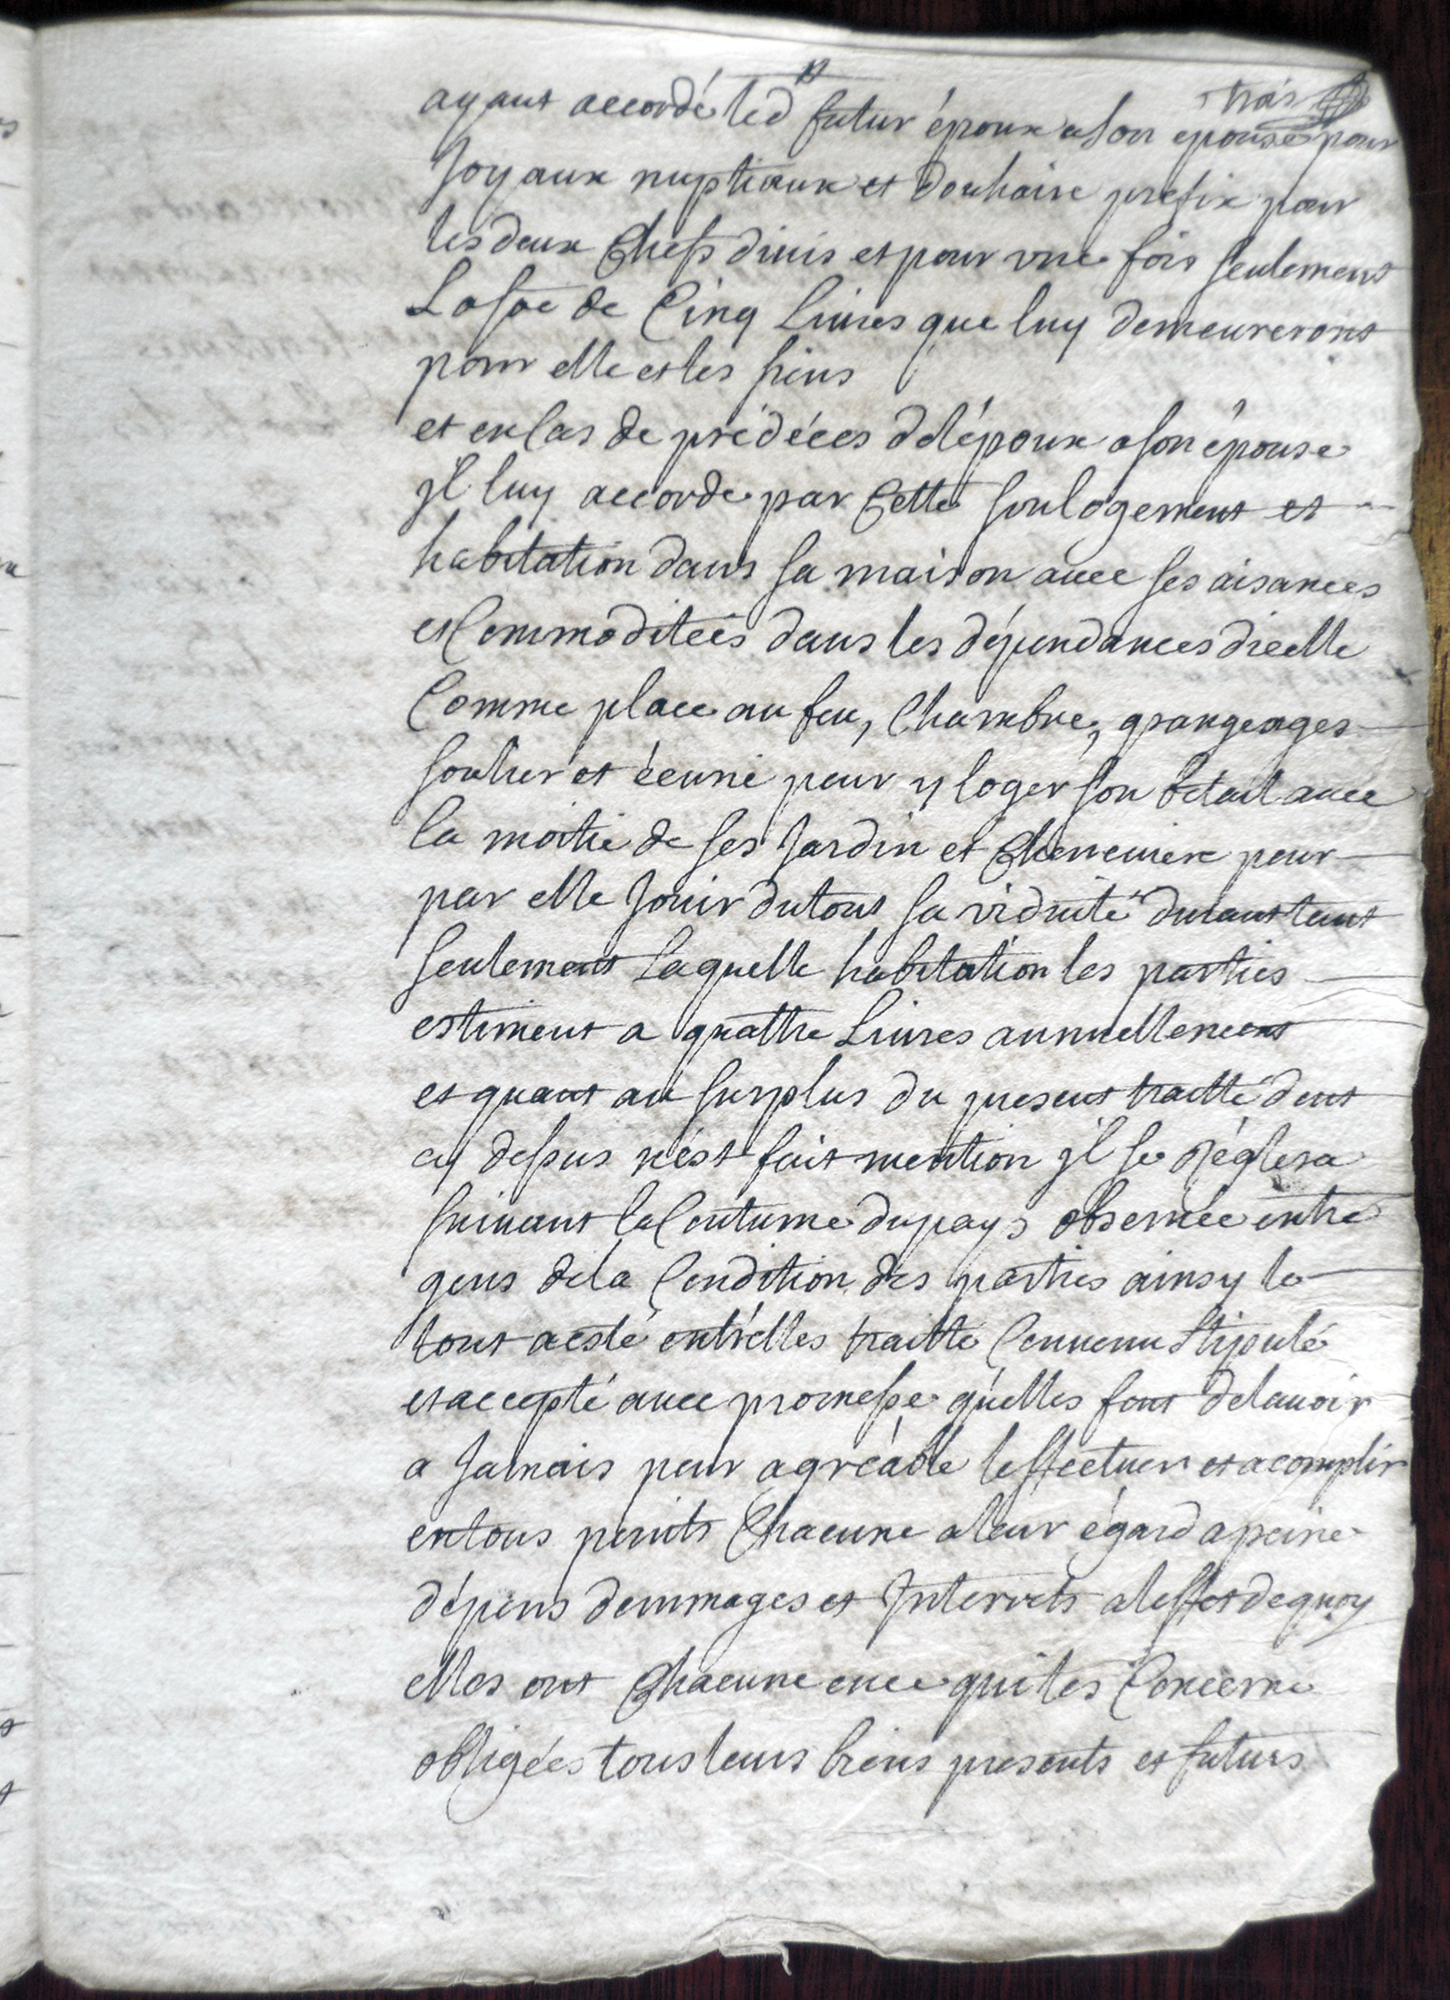 trois
ayant accordé led t futur époux a son epouse pour
Joyaux nuptiaux et douhaire prefix pour
les deux Chefs dinis et pour vne fois seulement
La soe de Cinq Liures que luy demeureront
pour elle et les siens
et en Cas de prédécés de lépoux a son épouse
jl luy accorde par Cette son logement et
habitation dans sa maison auec ses aisances
et Commoditeés dans les dépendances dicelle
Comme place au feu, Chambre, grangeages
soulier et écurie pour y loger son betail auec
la moitié de ses Jardin et Cheneuiere pour
par elle Jouir du tout sa viduité durant tant
seulement Laquelle habitation les parties
estiment a quattre Liures annuellement
et quant au surplus du present traitté dont
cy dessus n'ést fait mention jl se réglera
suiuant la Coutume du pays obseruée entre
gens de la Condition des parties ainsy le
tout a esté entr'elles traitté Conuenu Stipulé
et accepté auec promesse qu'elles font de lauoir
a Jamais pour agréable leffectuer et acomplir
en tous points Chacune a leur égard a peine
dépens dommages et Interrets a leffet de quoy
elles ont Chacune en ce qui les Concerne
obligées tous leurs biens presents et futurs